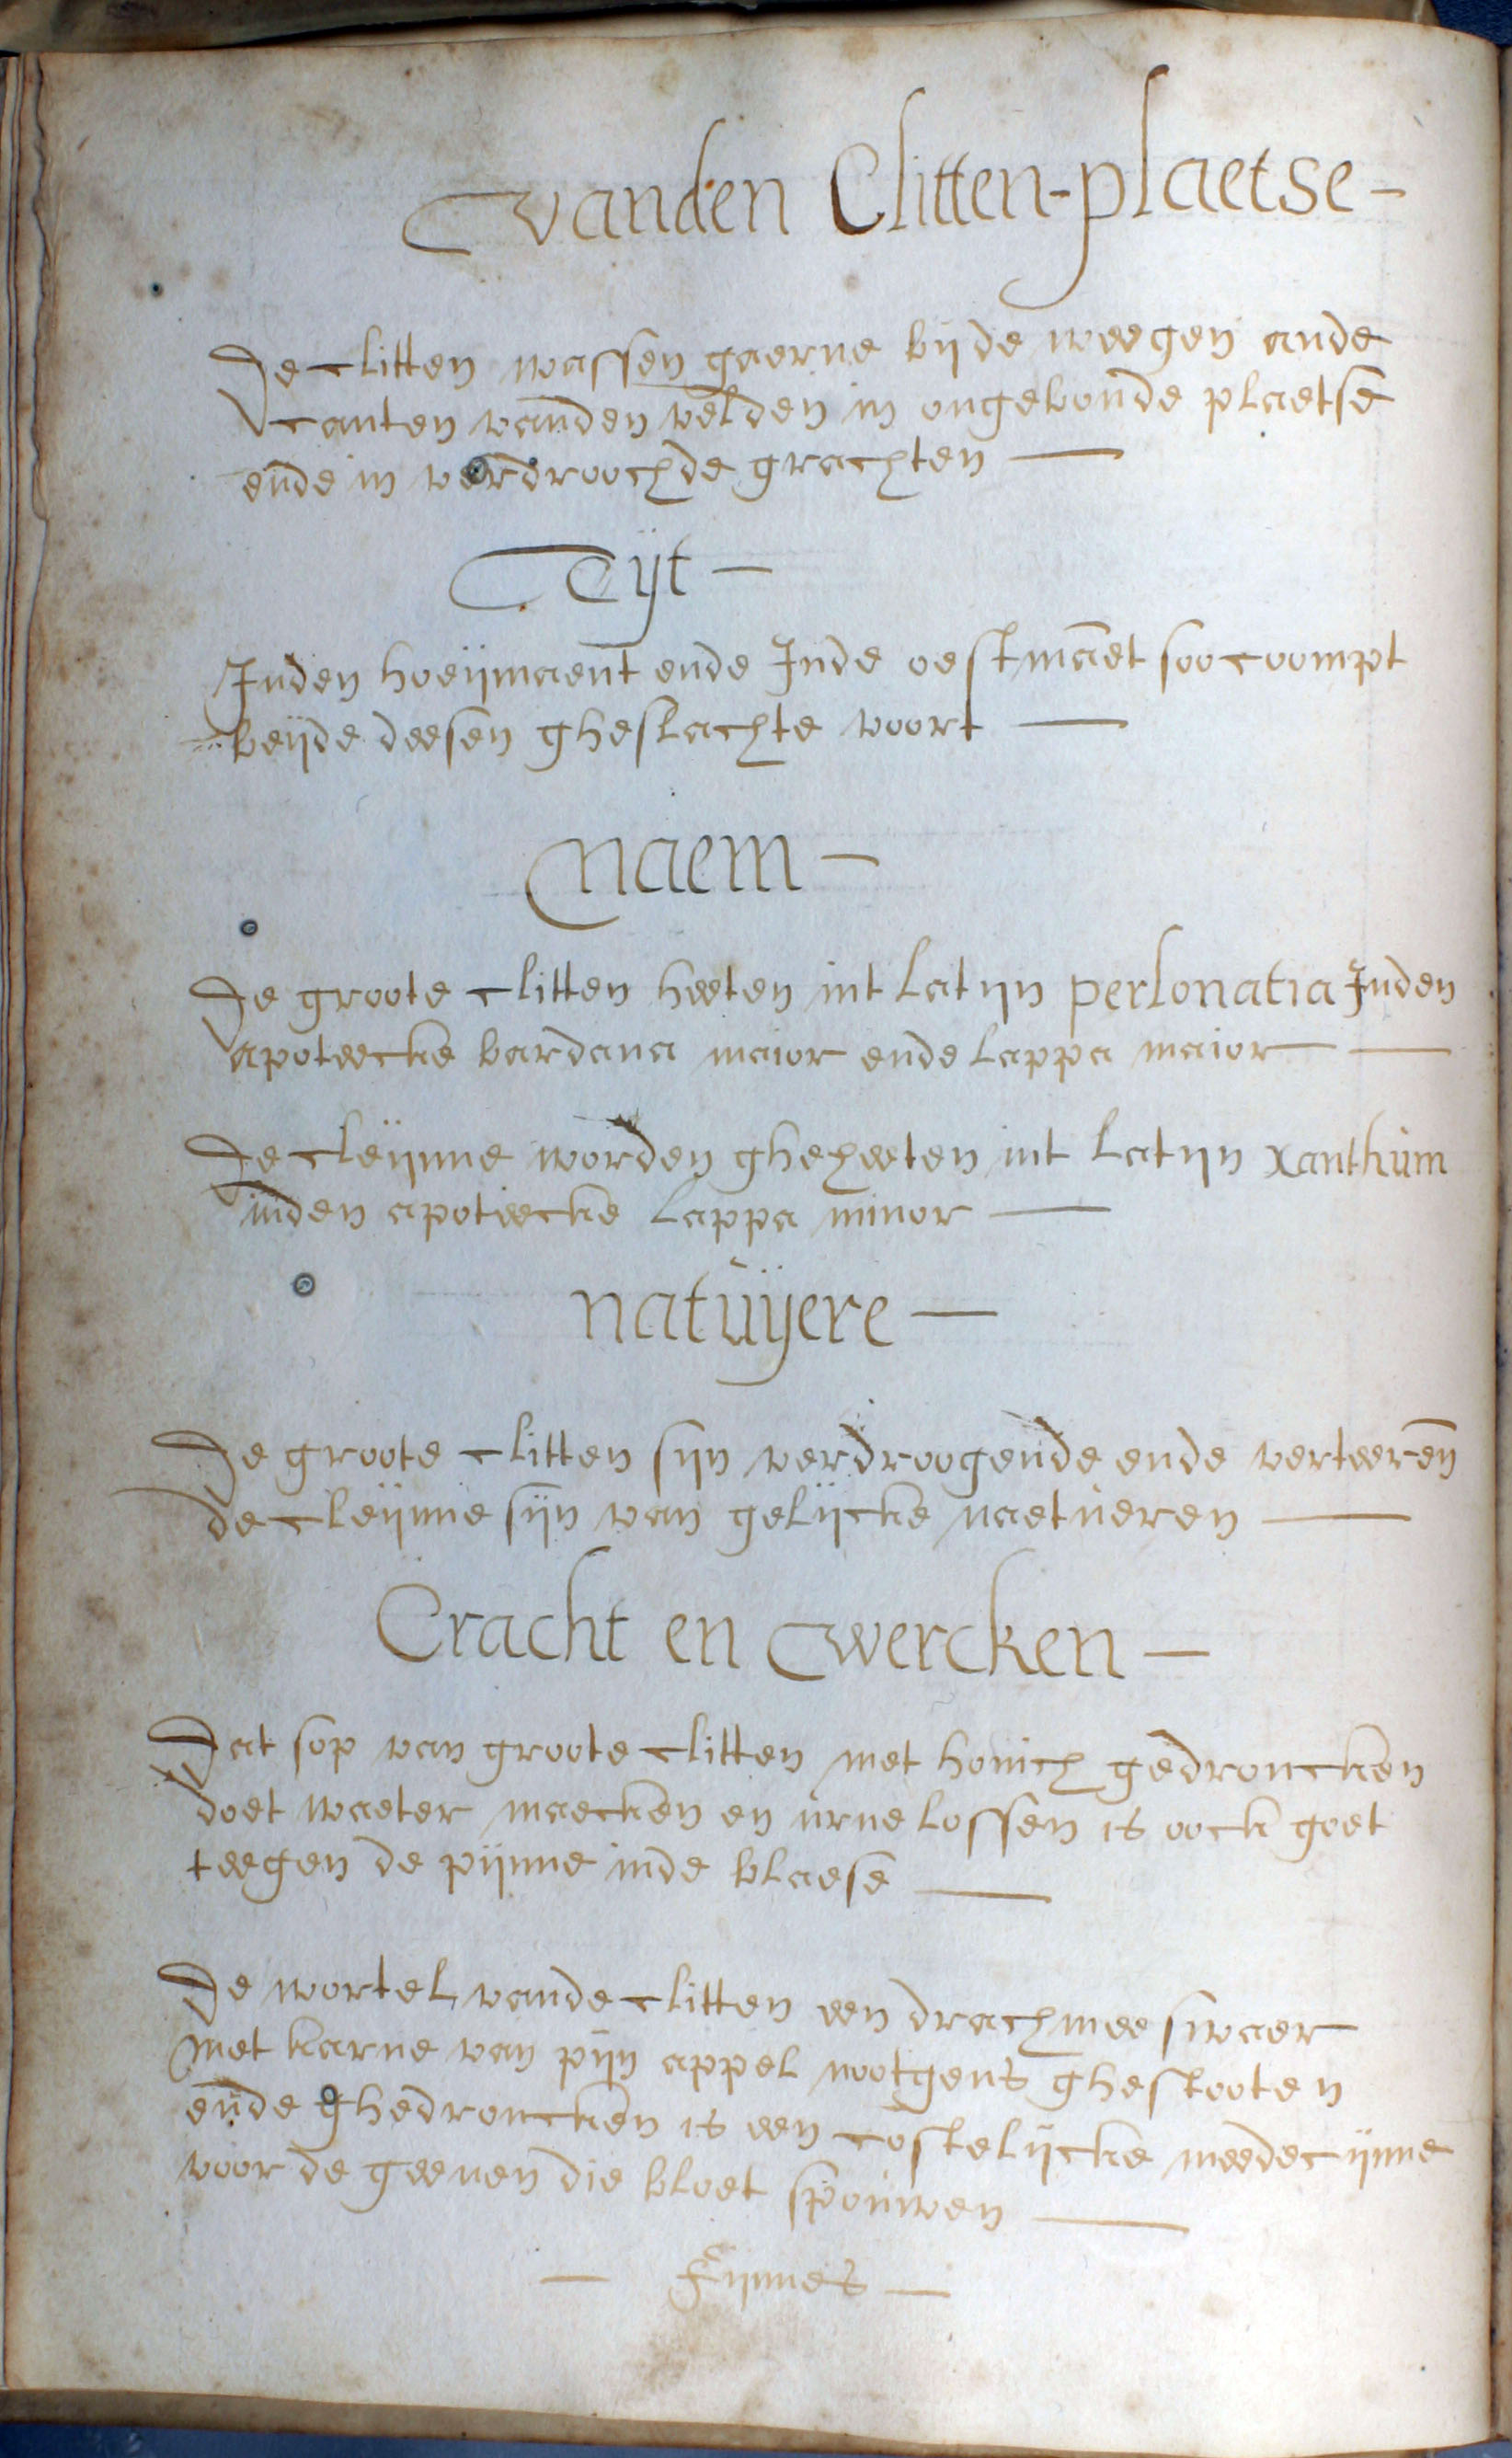 vanden Clitten-plaetse-
De clitten wassen gaerne bijde weegen ande
canten vanden velden in ongeboude plaetse
ende in verdroochde grachten —
Tijt —
Inden hoeijmaent ende Inde oestmāet soo coompt
beijde deesen gheslachte voort —
naem —
De groote clitten heeten int Latijn perlonatia Inden
apoteecke bardana maior ende Lappa maior —
De cleijnne worden gheheeten int Latijn xanthum
inden apoteecke Lappa minor —
natuijere —
De groote clitten sijn verdroogende ende verteerēn
de cleijnne sijn van gelijcke naetueren —
Cracht en wercken —
Dat sop van groote clitten met honich gedroncken
doet waeter maecken en urne lossen is oock goet
teegen de pijnne inde blaese —
De wortel vande clitten een drachmee swaer
met karne van pijn appel nootgens ghestooten
ende ghedroncken is een costelijcke meedecijnne
voor de geenen die bloet spouwen —
— Fijnnes —